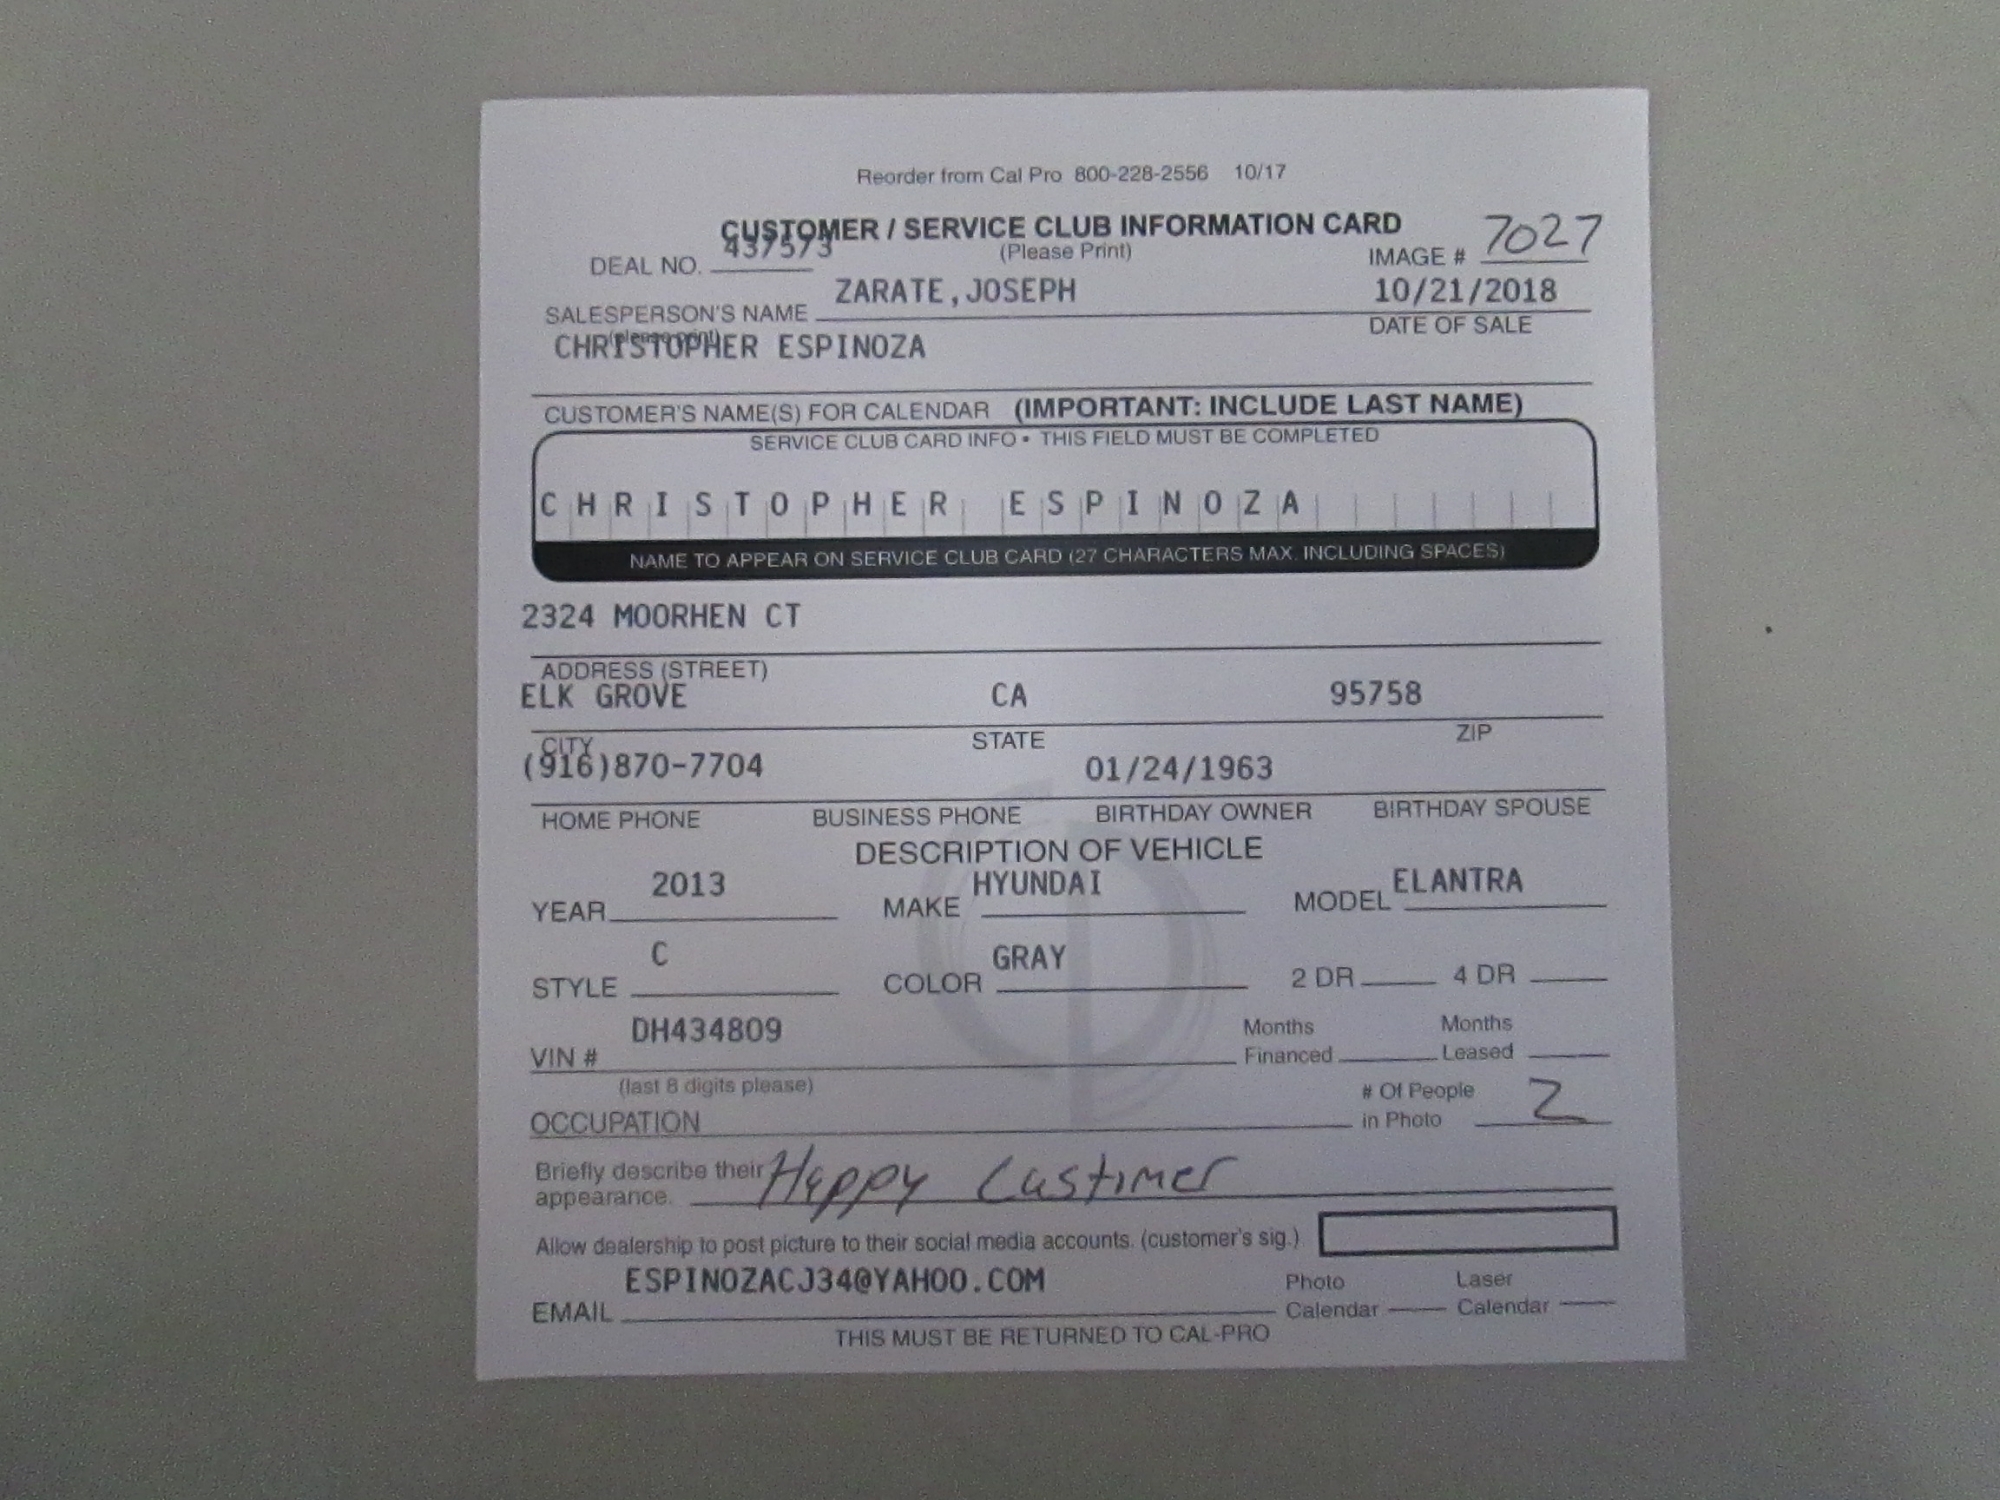 Reorder from Cal Pro 800-228-2556 10/17
CUSTOMER / SERVICE CLUB INFORMATION CARD
(Please Print)
DEAL NO. 437573
IMAGE # 7027
SALESPERSON'S NAME ZARATE,JOSEPH
(please print)
10/21/2018
DATE OF SALE
CHRISTOPHER ESPINOZA
CUSTOMER'S NAME(S) FOR CALENDAR (IMPORTANT: INCLUDE LAST NAME)
SERVICE CLUB CARD INFO • THIS FIELD MUST BE COMPLETED
CHRISTOPHER ESPINOZA
NAME TO APPEAR ON SERVICE CLUB CARD (27 CHARACTERS MAX. INCLUDING SPACES)
2324 MOORHEN CT
ADDRESS (STREET)
ELK GROVE CA 95758
CITY STATE ZIP
(916)870-7704 01/24/1963
HOME PHONE BUSINESS PHONE BIRTHDAY OWNER BIRTHDAY SPOUSE
DESCRIPTION OF VEHICLE
YEAR 2013 MAKE HYUNDAI MODEL ELANTRA
STYLE C COLOR GRAY 2 DR 4 DR
VIN # DH434809
(last 8 digits please)
Months Financed Months Leased
OCCUPATION
# Of People in Photo 2
Briefly describe their appearance. Happy Custimer
Allow dealership to post picture to their social media accounts. (customer's sig.)
EMAIL ESPINOZACJ34@YAHOO.COM
Photo Calendar Laser Calendar
THIS MUST BE RETURNED TO CAL-PRO